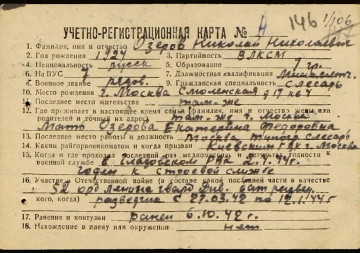 146 1/106
УЧЕТНО-РЕГИСТРАЦИОННАЯ КАРТА №
1. Фамилия, имя и отчество Озеров Николай Николаевич
2. Год рождения 1924 3. Партийность ВЛКСМ
4. Национальность русск 5. Образование 7 гр.
6. № ВУС 7. Должностная квалификация
8. Военное звание рядов. 9. Гражданская специальность Слесарь
10. Место рождения г. Москва Смоленская д 17 кв 4
11. Последнее место жительства там-же
12. Где проживает в настоящее время семья (фамилия, имя и отчество жены или
родителей и точный их адрес) там-же г. Москва
Мать Озерова Екатерина Федоровна
13. Последнее место работы и должность Москва Слесарь
14. Каким райгорвоенкоматом и когда призван Киевским г. Москва
15. Когда и где проходил последний раз медкомиссию, степень годности
военной службе 1.44г.
годен к строевой службе
16. Участие в Отечественной войне (в составе какой последней части и в качестве
кого, когда) 52 орд Ленина гвард Див. бат
разведчик с 27.03.42 по 12.1.44г
17. Ранения и контузии ранен 6.10.42г.
18. Нахождение в плену или окружении нет